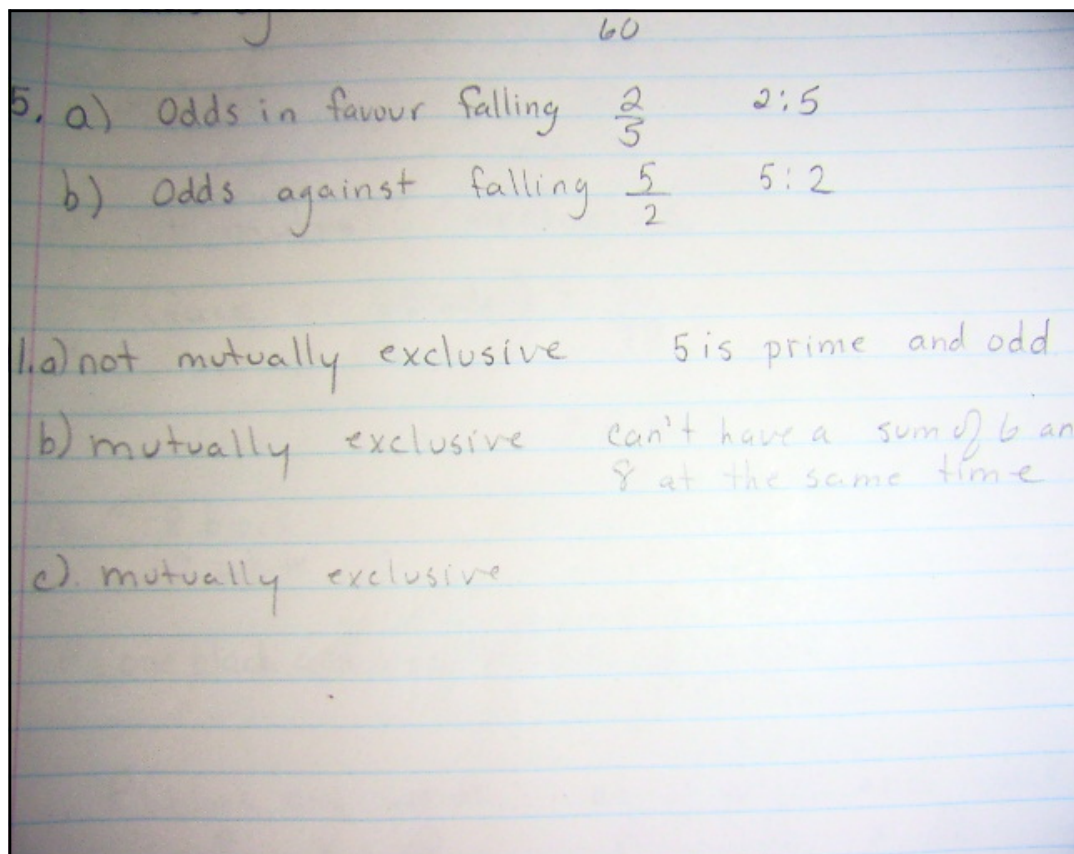 60
5. a) Odds in favour falling 2/5 2:5
b) Odds against falling 5/2 5:2
1.a) not mutually exclusive 5 is prime and odd
b) mutually exclusive can't have a sum of 6 an
8 at the same time
c). mutually exclusive